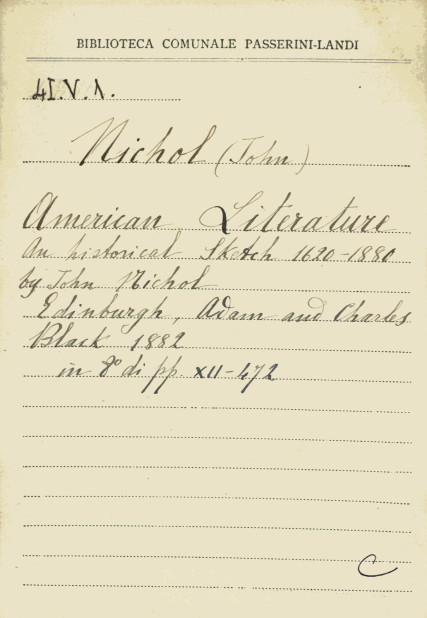 BIBLIOTECA COMUNALE PASSERINI-LANDI
4I.V.1.
Nichol (John)
American Literature
An historical Sketch 1620-1880
by John Nichol
Edinburgh, Adam and Charles
Black 1882
in 8° di pp. XII-472
C